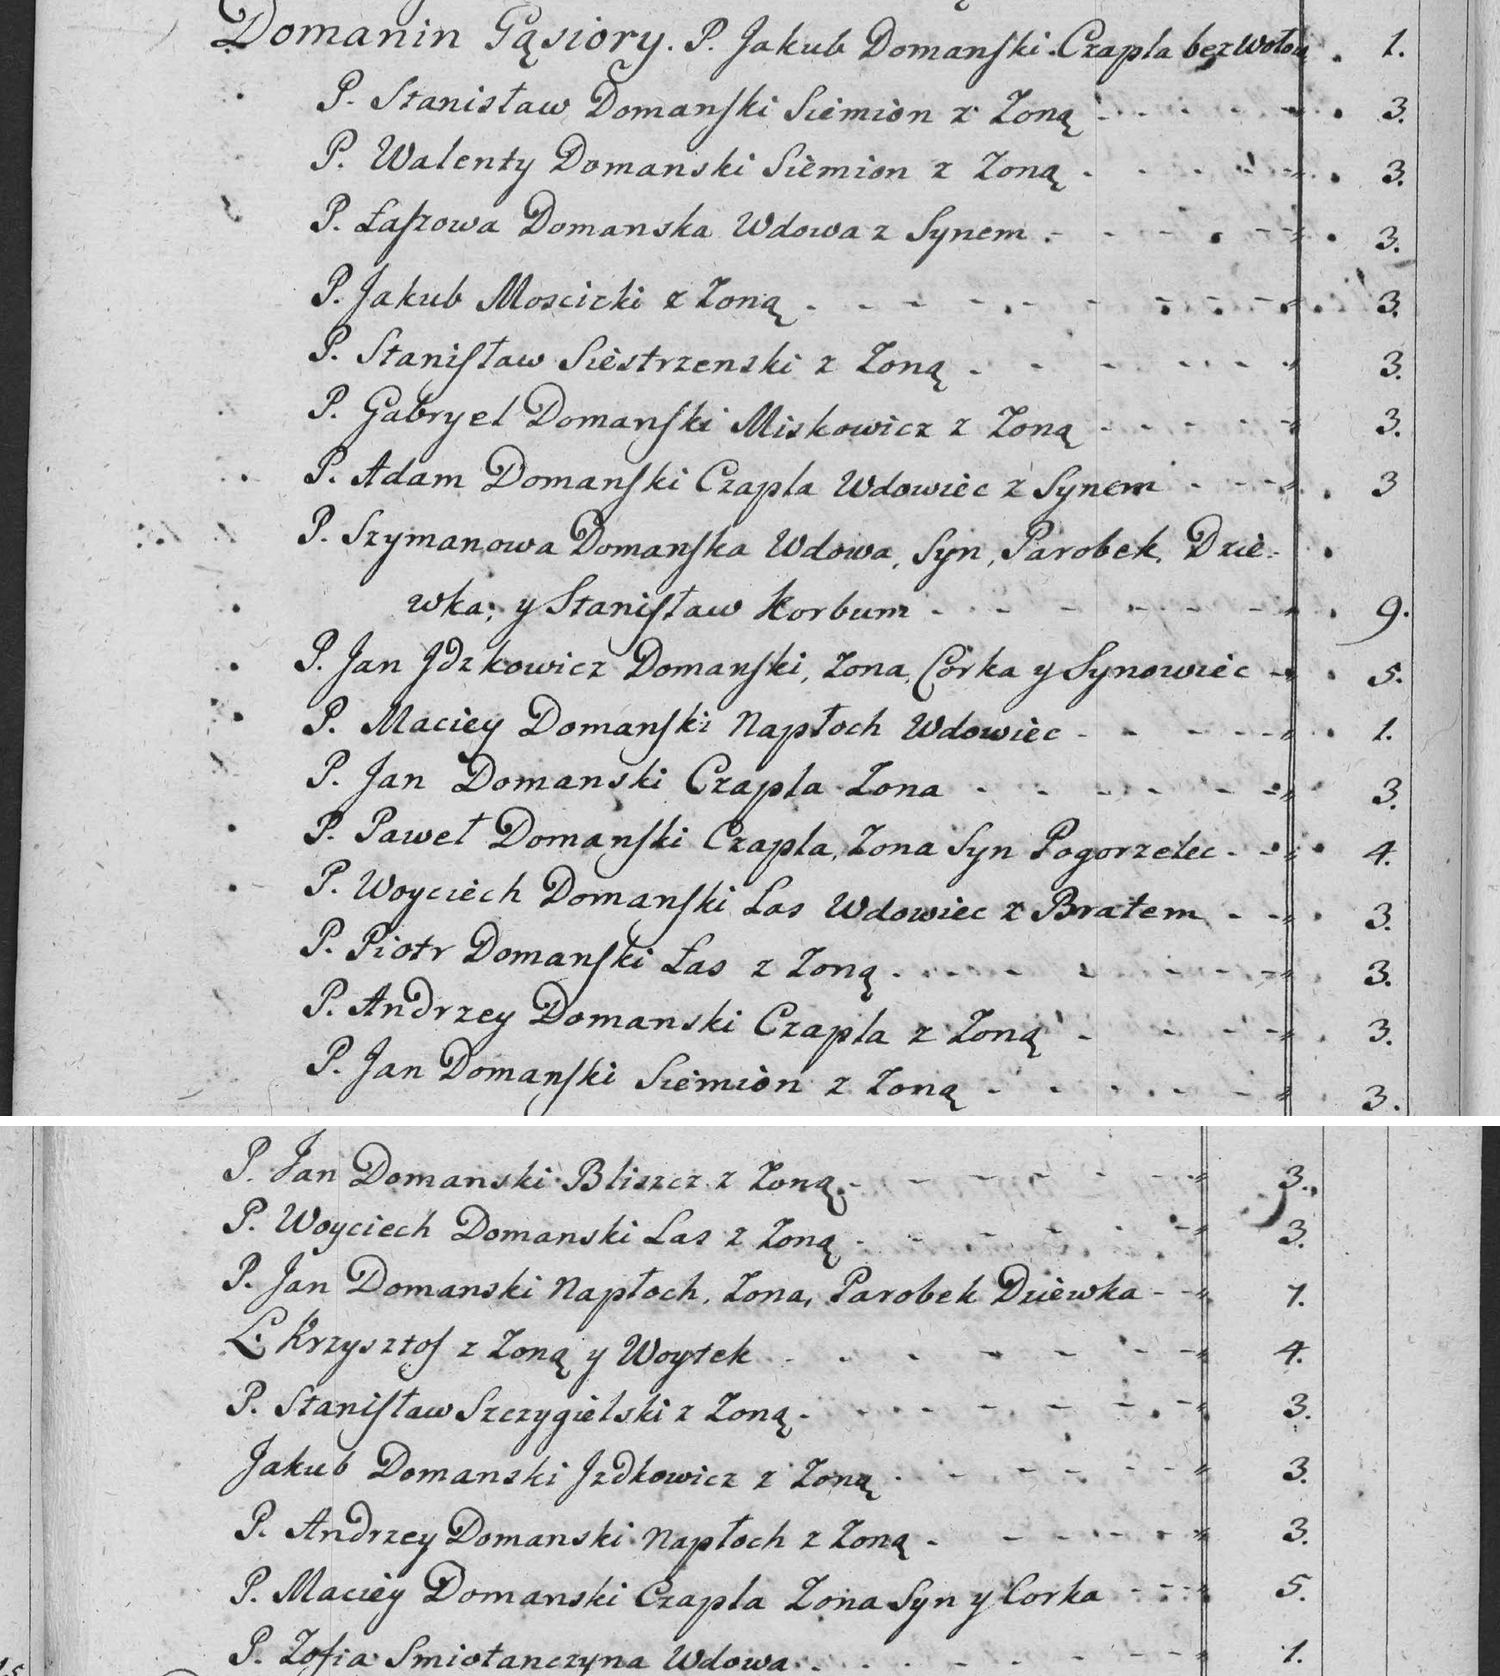 Domanin Gąsiory. P. Jakub Domanſki Czapla bez Wołow 1.
P. Stanisław Domanſki Siemion z Zoną 3.
P. Walenty Domanski Siemion z Zoną 3.
P. Łaſzowa Domanska Wdowa z Synem 3.
P. Jakub Moscicki z Zoną 3.
P. Staniſław Siestrzenski z Zoną 3.
P. Gabryel Domanſki Miskowicz z Zoną 3.
P. Adam Domanſki Czapla Wdowiec z Synem 3
P. Szymanowa Domanſka Wdowa, Syn, Parobek, Dzie-
wka; y Staniſław Korbum 9.
P. Jan Jdzkowicz Domanſki, Zona, Córka y Synowiec 5.
P. Maciey Domanſki Napłoch Wdowiec 1.
P. Jan Domanski Czapla Zona 3.
P. Paweł Domanſki Czapla, Zona Syn Pogorzelec 4.
P. Woyciech Domanſki Las Wdowiec z Bratem 3.
P. Piotr Domanſki Las z Zoną 3.
P. Andrzey Domanski Czapla z Zoną 3.
P. Jan Domanſki Siemion z Zoną 3.
P. Jan Domanski Bliszcz z Zoną 3.
P. Woyciech Domanski Las z Zoną 3.
P. Jan Domanski Napłoch, Zona, Parobek Dziewka 7.
Krzysztof z Zoną y Woytek 4.
P. Staniſław Szczygielski z Zoną 3.
Jakub Domanski Jzdkowicz z Zoną 3.
P. Andrzey Domanski Napłoch z Zoną 3.
P. Maciey Domanski Czapla Zona Syn y Corka 5.
P. Zofia Smiotanczyna Wdowa 1.